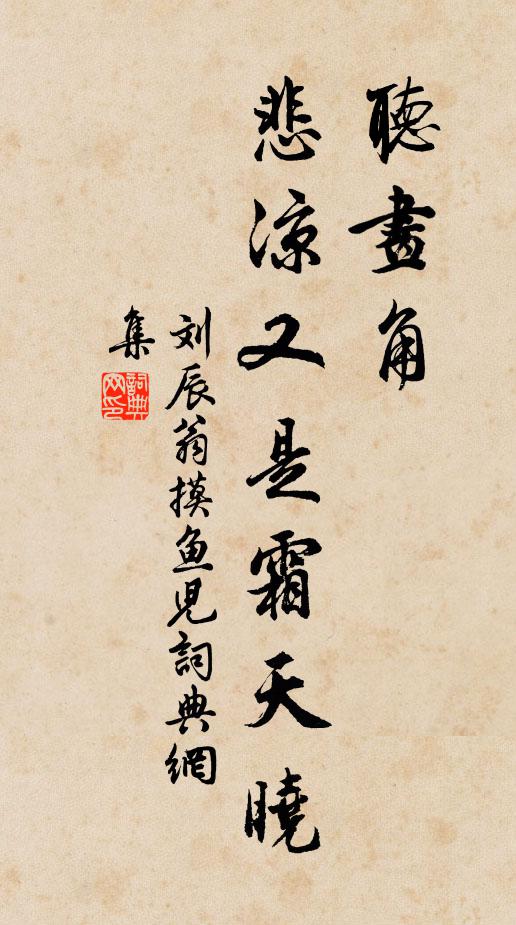 聽畫角
悲涼又是霜天曉
刘辰翁摸鱼児詞典網
集
詞典網印